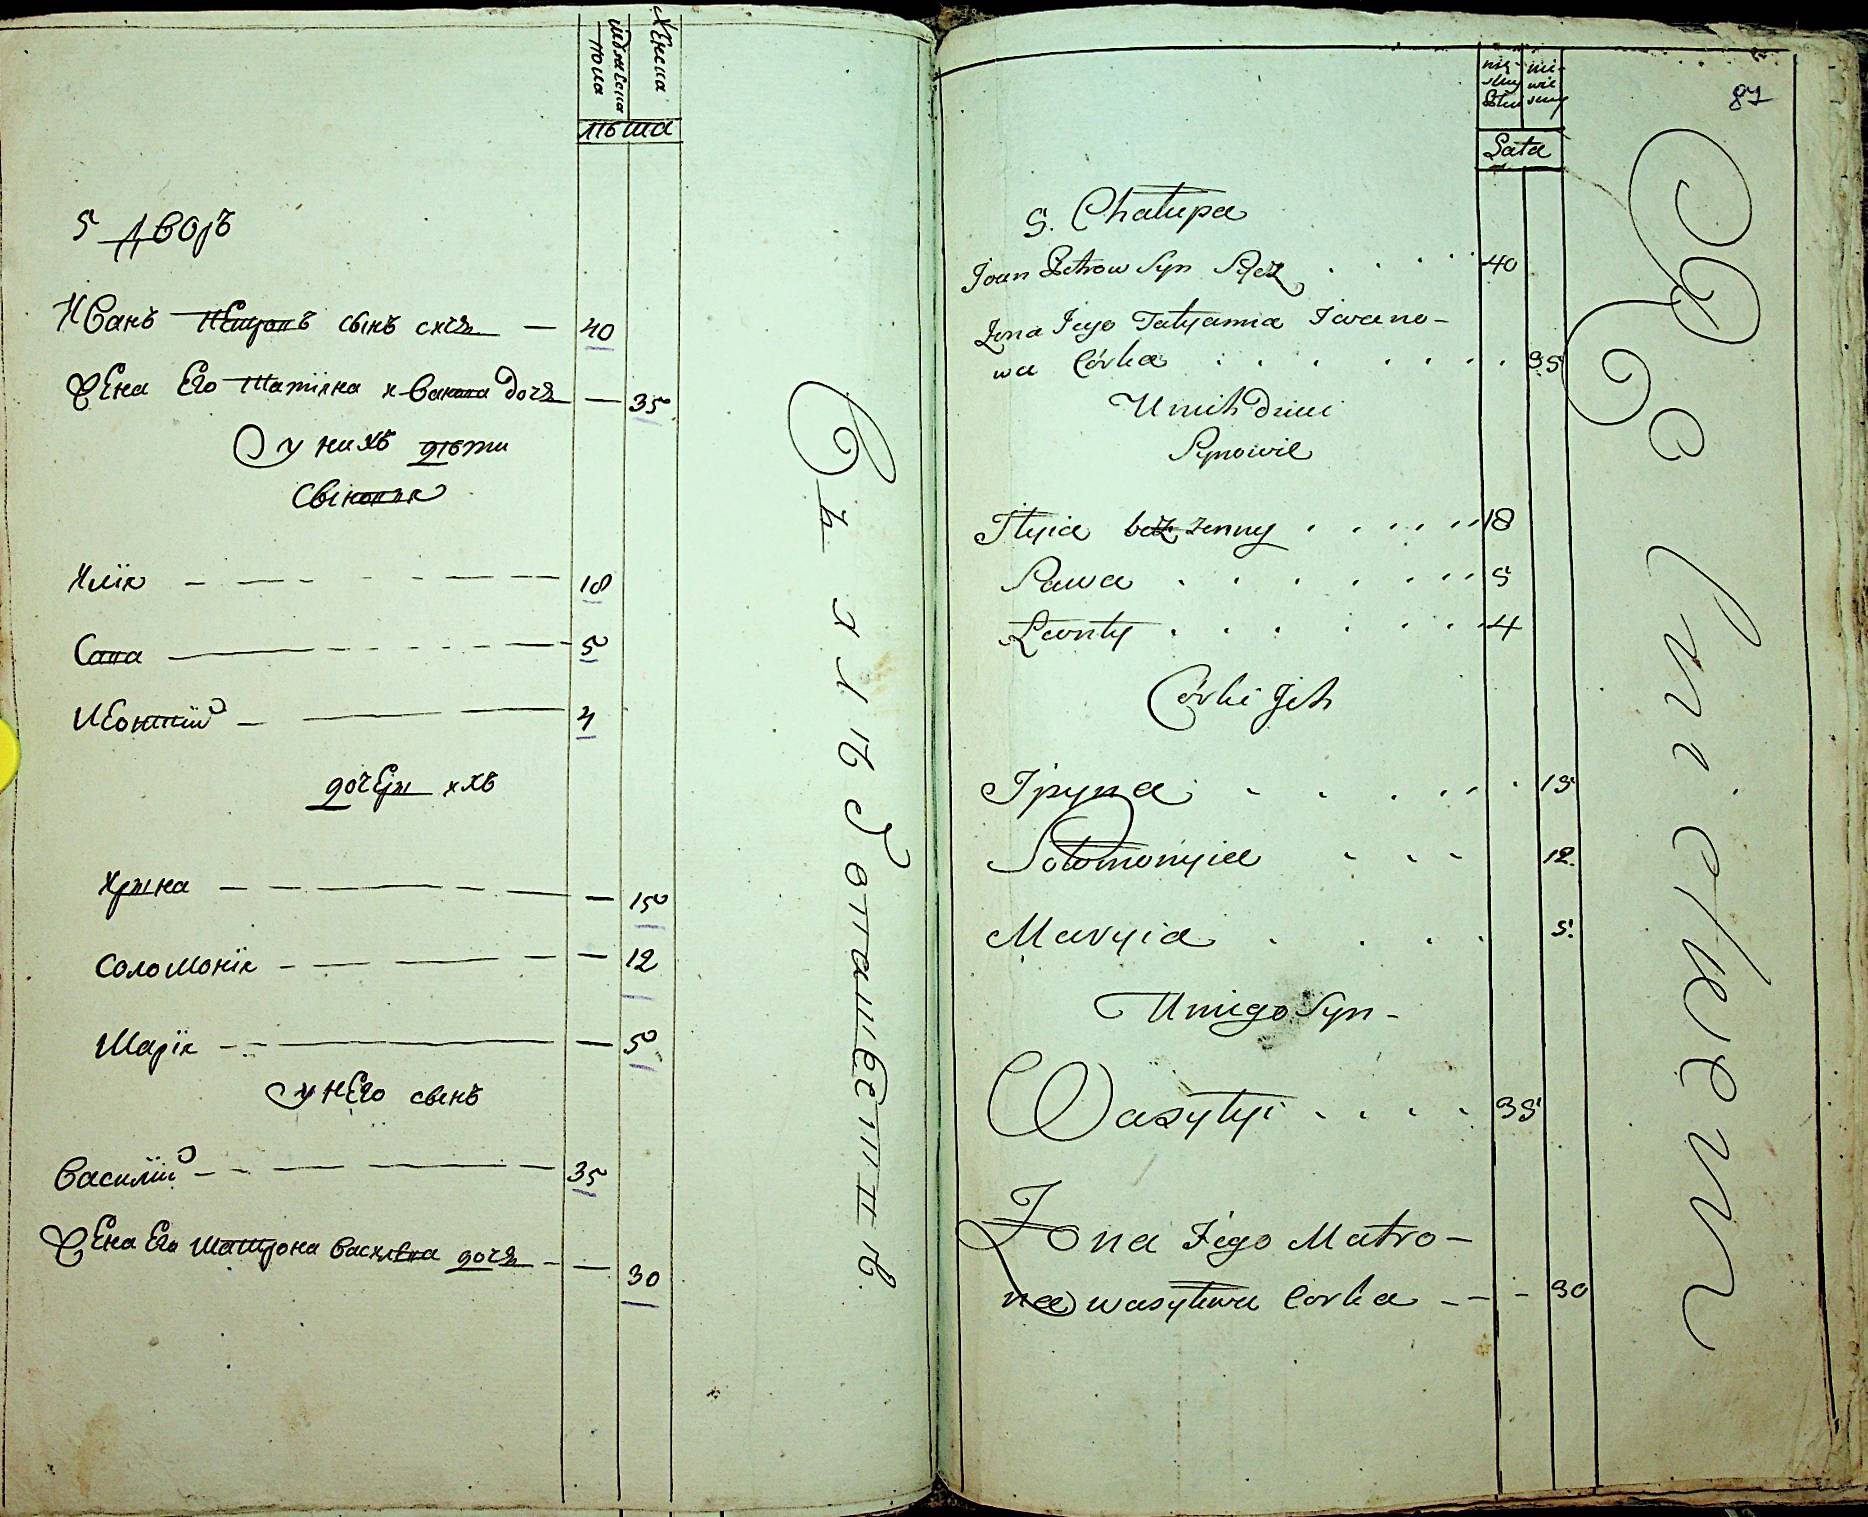 мужеска
пола
Женска
лѣта
5 дворъ
Иванъ Петровъ сынъ — 40
Жена Его Татіяна Иванова дочь — 35
У нихъ дѣти
Сыновья
Илія — 18
Сава — 5
Леонтий — 4
дочери ихъ
Ирина — 15
Соломонія — 12
Марія — 5
У нЕго сынъ
Василій — 35
Жена Его Матрона Василева дочь — 30
Въ Бѣлѣ
87
Lata
5. Chałupa
Joan Petrow Syn . . . . 40
Żona Jego Tatyanna Iwano-
wa Córka . . . . . . . 35
U nich dzieci
Synowie
Iłyia bez żenny . . . . . . 18
Sawa . . . . . . . 5
Leonty . . . . . . . 4
Córki Jch
Iryna . . . . . . . 15
Sołomonyia . . . 12.
Maryia . . . . 5.
U niego Syn -
Wasyłyi . . . . 35
Żona Jego Matro-
na wasylewa Corka - - - 30